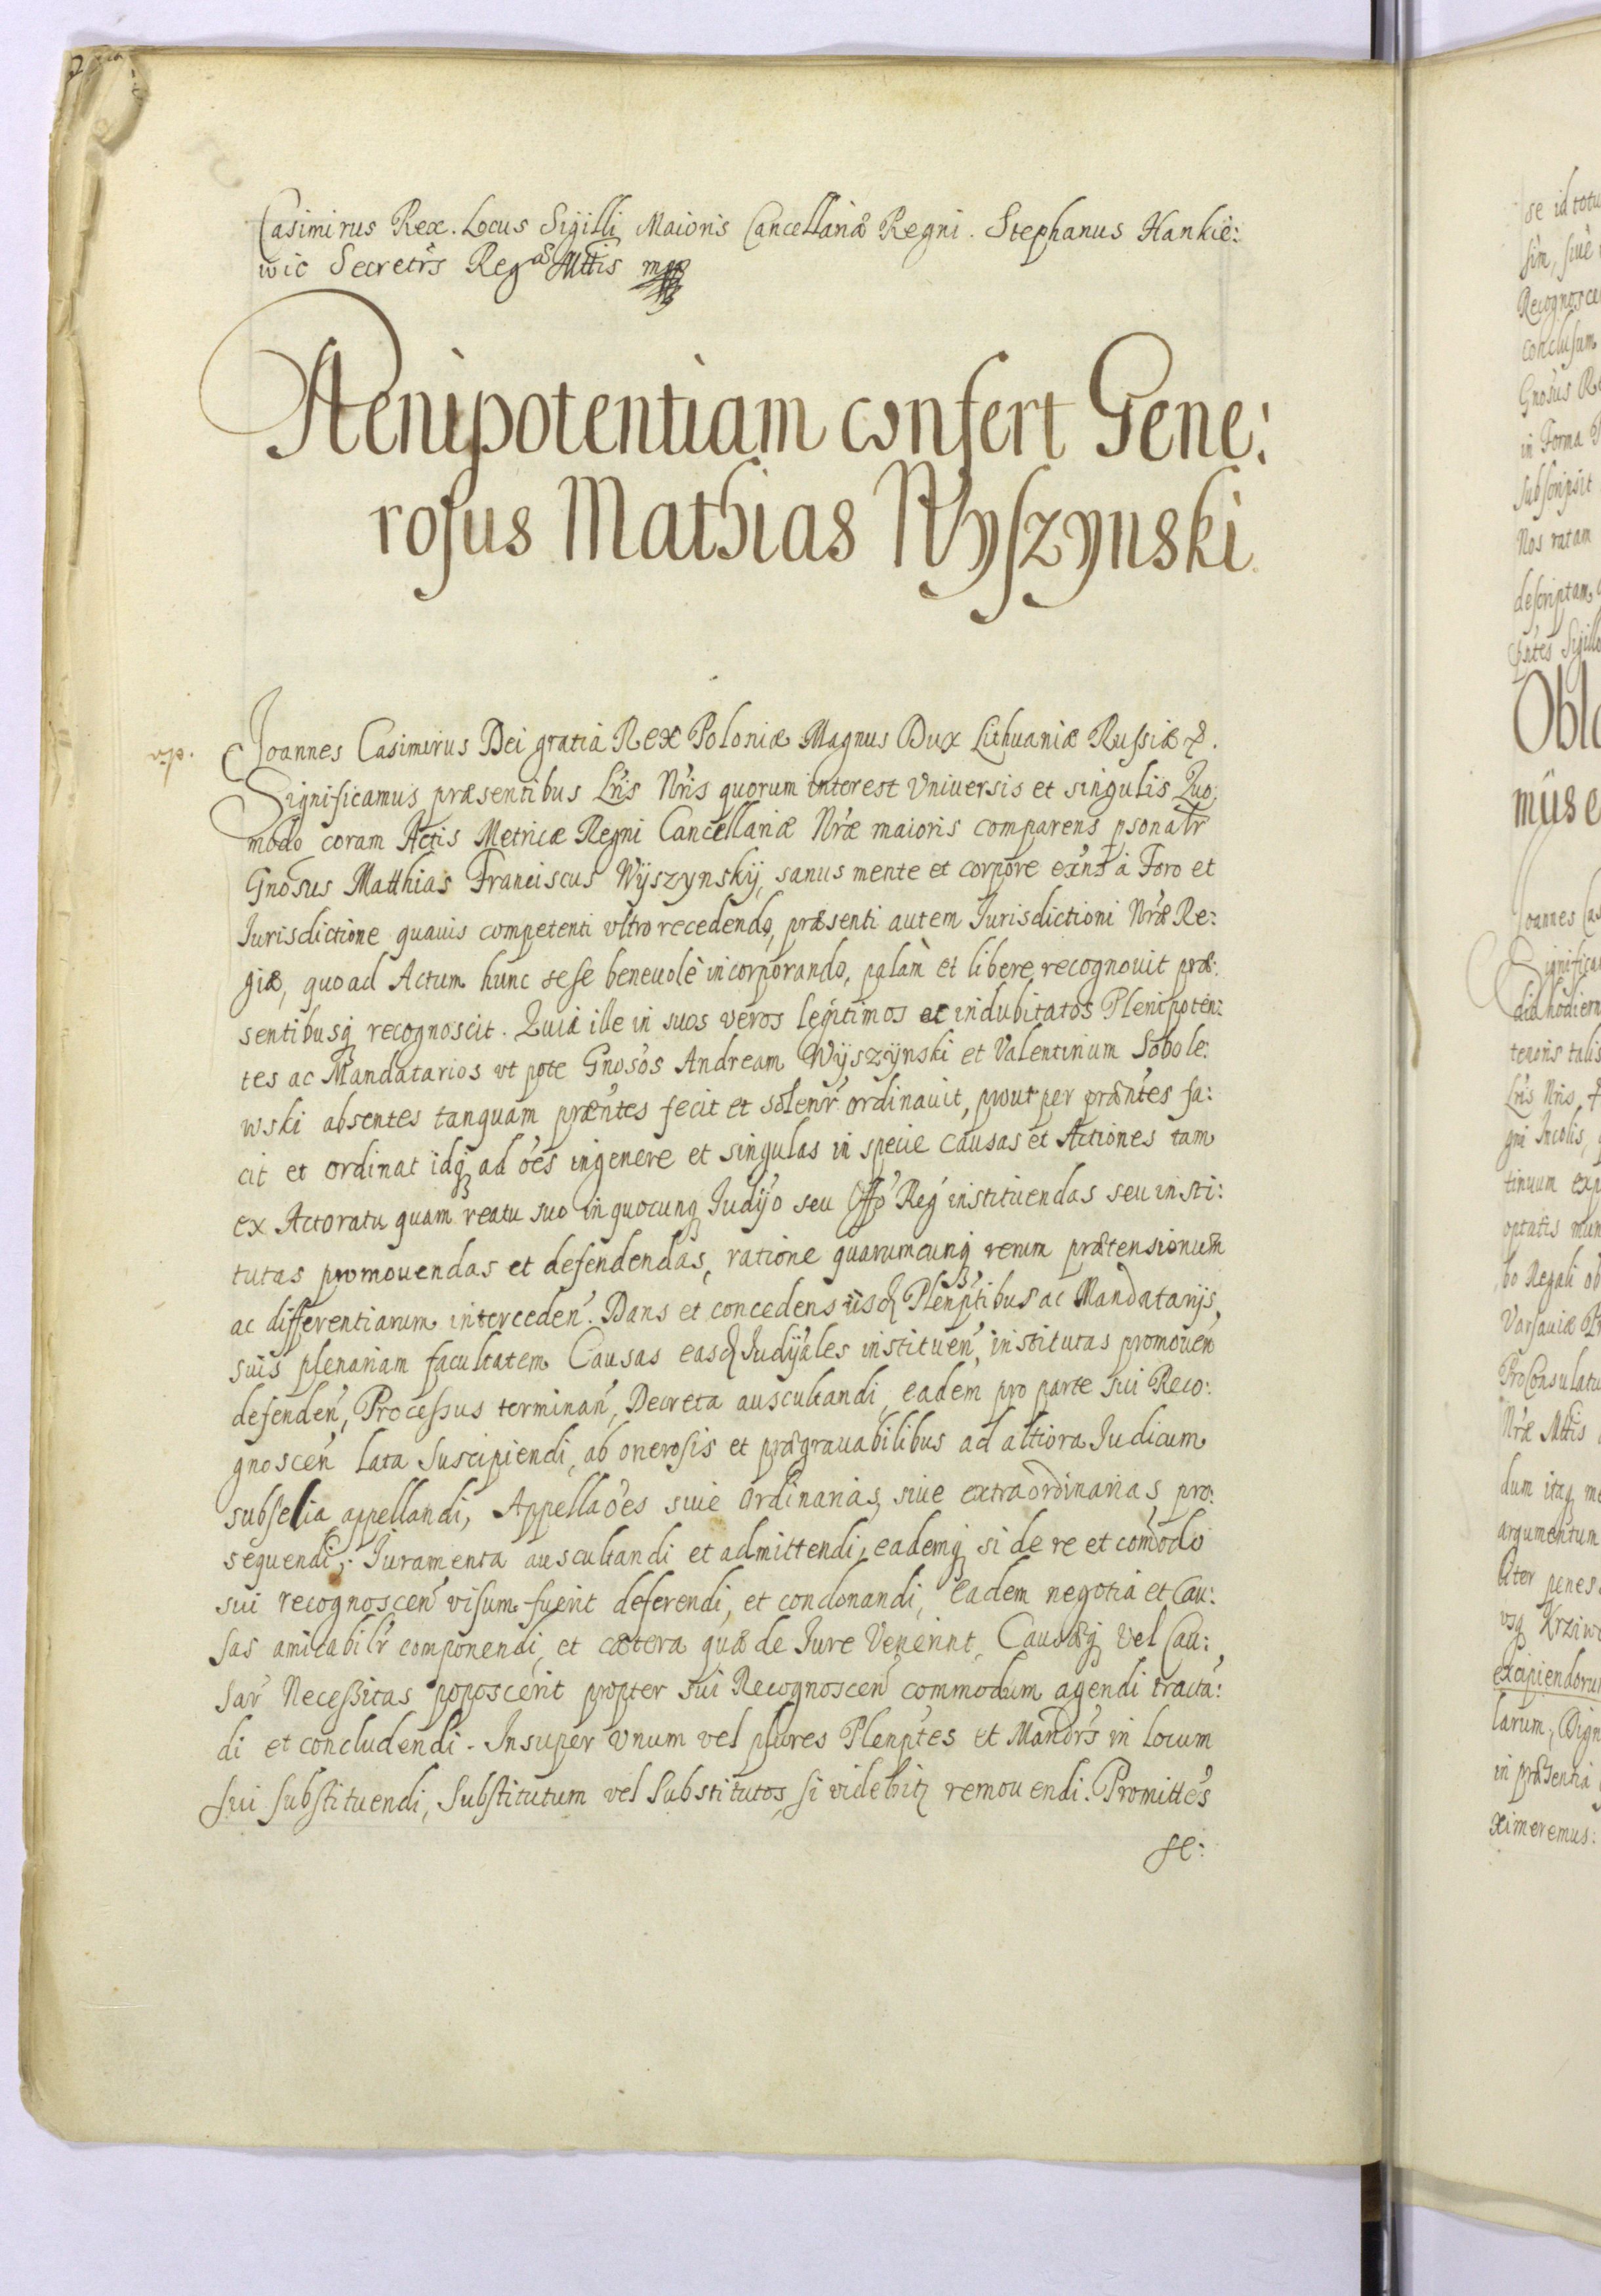 Casimirus Rex. Locus Sigilli Maioris Cancellariæ Regni. Stephanus Hankie:
wic Secretr̃s Regæ Mttis mp
Plenipotentiam confert Gene:
rosus Mathias Wyszynski
Joannes Casimirus Dei gratia Rex Poloniæ Magnus Dux Lithuaniæ Russiæ &.
Significamus præsentibus Lr̃is Nr̃is quorum interest Vniuersis et singulis Quo:
modo coram Actis Metricæ Regni Cancellariæ Nr̃æ maioris comparens psonalr̃
Gnosus Matthias Franciscus Wÿszynskÿ, sanus mente et corpore exñs à Foro et
Iurisdictione quauis competenti vltro recedendo, præsenti autem Iurisdictioni Nr̃æ Re:
giæ, quo ad Actum hunc sese beneuolè incorporando, palàm et libere recognouit præ:
sentibusq recognoscit. Quia ille in suos veros legitimos et indubitatos Plenipoten:
tes ac Mandatarios vt pote Gnosos Andream Wÿszÿnski et Valentinum Sobole:
wski absentes tanquam præñtes fecit et solenr̃ ordinauit, prout per præñtes fa:
cit et ordinat idq ad oẽs ingenere et singulas in specie causas et Actiones tam
ex Actoratu quam reatu suo in quocunq Judÿo seu Offo Reg instituendas seu insti:
tutas promouendas et defendendas, ratione quarumcunq rerum prætensionum
ac differentiarum interceden̉. Dans et concedens iisd Plenptibus ac Mandatarijs
suis plenariam facultatem Causas easd Judÿales instituen̉, institutas promouen̉
defenden̉, Processus terminan̉, Decreta auscultandi, eadem pro parte sui Reco:
gnoscen̉ lata suscipiendi, ab onerosis et prægrauabilibus ad altiora Iudicum
subselia appellandi, Appellaões siue ordinarias, siue extraordinarias, pro:
sequendi; Iuramenta auscultandi et admittendi, eademq si de re et com̃odo
sui recognoscen̉ visum fuerit deferendi, et condonandi, eadem negotia et Cau:
sas amicabilr̃ componendi, et cætera quæ de Iure Venerint, Causæq vel Cau:
sar̃ Necessitas poposcerit propter sui Recognoscen̉ commodum agendi tractã:
di et concludendi. Insuper vnum vel plures Plenptes et Mandr̃s in locum
sui substituendi, Substitutum vel Substitutos, si videbitz remouendi. Promittẽs
se: